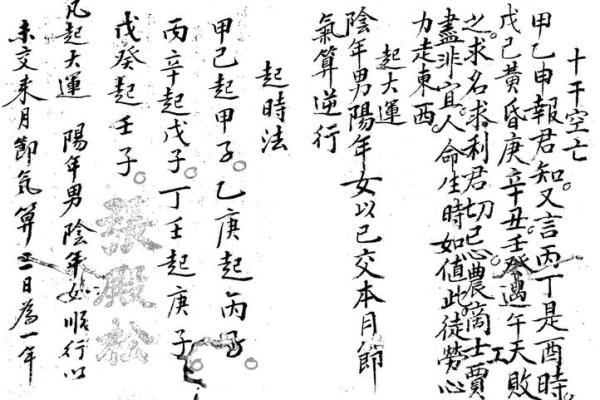 十干空亡
甲乙申報君知。又言丙丁是酉時。
戊己黃昏庚辛丑。壬癸遇午天敗
之。求名求利君切忌。農商工士賈
盡非宜。人命生時如值此徒勞心
力走東西。
起大運
陰年男陽年女以已交本月節
氣算逆行
起時法
甲己起甲子。乙庚起丙子。
丙辛起戊子。丁壬起庚子
戊癸起壬子。
凡起大運 陽年男陰年女順行以
未交来月節氣算三日為一年
張殿松